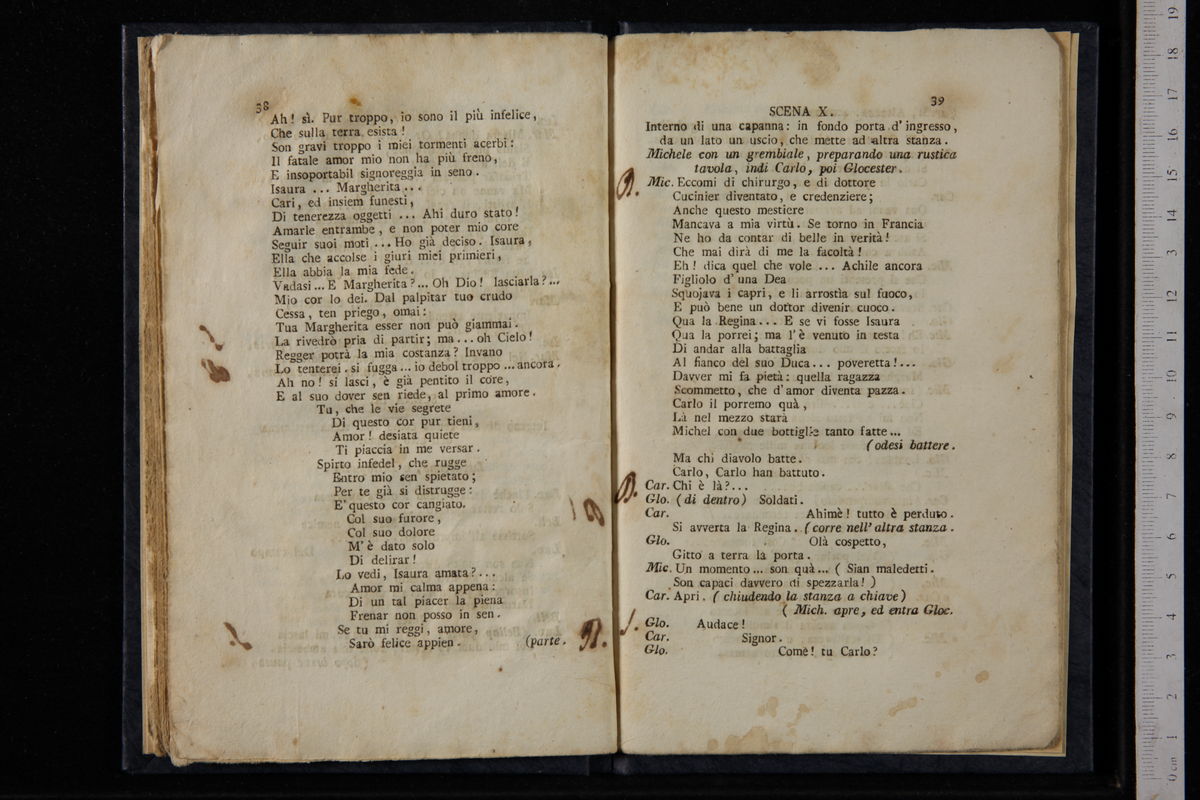 38
Ah! sì. Pur troppo, io sono il più infelice,
Che sulla terra esista!
Son gravi troppo i miei tormenti acerbi:
Il fatale amor mio non ha più freno,
E insoportabil signoreggia in seno.
Isaura ... Margherita ...
Cari, ed insiem funesti,
Di tenerezza oggetti ... Ahi duro stato!
Amarle entrambe, e non poter mio core
Seguir suoi moti ... Ho già deciso. Isaura,
Ella che accolse i giuri miei primieri,
Ella abbia la mia fede.
Vadasi ... E Margherita? ... Oh Dio! lasciarla? ...
Mio cor lo dei. Dal palpitar tuo crudo
Cessa, ten priego, omai:
Tua Margherita esser non può giammai.
La rivedrò pria di partir; ma ... oh Cielo!
Regger potrà la mia costanza? Invano
Lo tenterei. si fugga ... io debol troppo ... ancora.
Ah no! si lasci, è già pentito il core,
E al suo dover sen riede, al primo amore.
Tu, che le vie segrete
Di questo cor pur tieni,
Amor! desiata quiete
Ti piaccia in me versar.
Spirto infedel, che rugge
Entro mio sen spietato;
Per te già si distrugge:
E' questo cor cangiato.
Col suo furore,
Col suo dolore
M'è dato solo
Di delirar!
Lo vedi, Isaura amata? ...
Amor mi calma appena:
Di un tal piacer la piena
Frenar non posso in sen.
Se tu mi reggi, amore,
Sarò felice appien. (parte.
39
SCENA X.
Interno di una capanna: in fondo porta d'ingresso,
da un lato un uscio, che mette ad altra stanza.
Michele con un grembiale, preparando una rustica
tavola, indi Carlo, poi Glocester.
Mic. Eccomi di chirurgo, e di dottore
Cucinier diventato, e credenziere;
Anche questo mestiere
Mancava a mia virtù. Se torno in Francia
Ne ho da contar di belle in verità!
Che mai dirà di me la facoltà!
Eh! dica quel che vole ... Achile ancora
Figliolo d'una Dea
Squojava i capri, e li arrostìa sul fuoco,
E può bene un dottor divenir cuoco.
Qua la Regina ... E se vi fosse Isaura
Qua la porrei; ma l'è venuto in testa
Di andar alla battaglia
Al fianco del suo Duca ... poveretta! ...
Davver mi fa pietà: quella ragazza
Scommetto, che d'amor diventa pazza.
Carlo il porremo quà,
Là nel mezzo starà
Michel con due bottiglie tanto fatte ...
(odesi battere.
Ma chi diavolo batte.
Carlo, Carlo han battuto.
Car. Chi è là? ...
Glo. (di dentro) Soldati.
Car. Ahimè! tutto è perduto.
Si avverta la Regina. (corre nell'altra stanza.
Glo. Olà cospetto,
Gitto a terra la porta.
Mic. Un momento ... son quà ... ( Sian maledetti.
Son capaci davvero di spezzarla! )
Car. Apri. ( chiudendo la stanza a chiave)
( Mich. apre, ed entra Gloc.
Glo. Audace!
Car. Signor.
Glo. Comè! tu Carlo?
0 cm 1 2 3 4 5 6 7 8 9 10 11 12 13 14 15 16 17 18 19